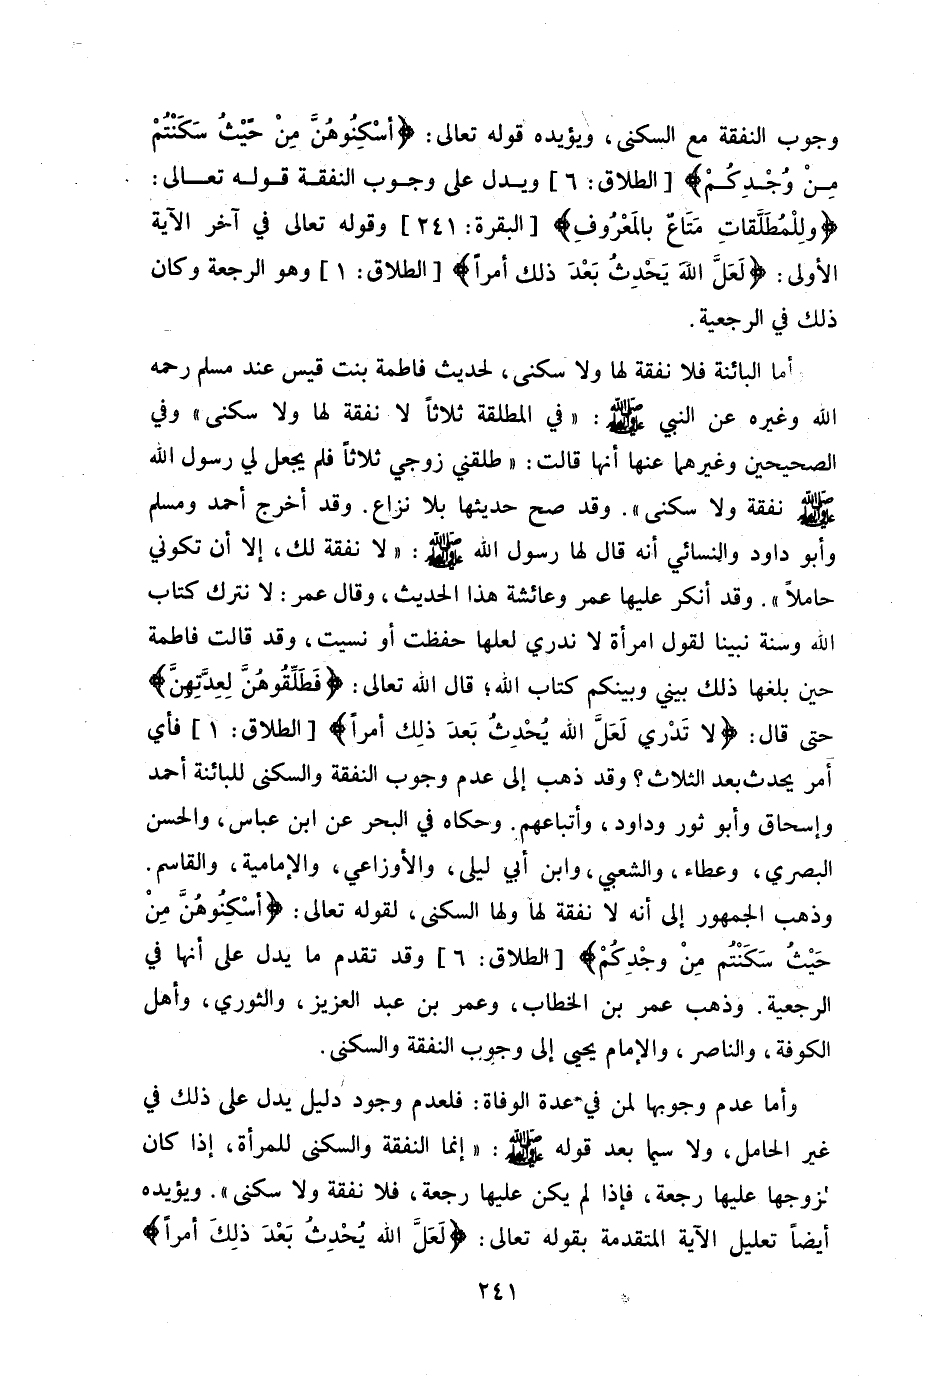 وجوب النفقة مع السكنى، ويؤيده قوله تعالى: ﴿أَسْكِنُوهُنَّ مِنْ حَيْثُ سَكَنْتُمْ
مِـنْ وُجْـدِكُـمْ﴾ [الطلاق: ٦] ويـدل على وجـوب النفقـة قـولـه تعـالى:
﴿وَلِلْمُطَلَّقاتِ مَتَاعٌ بالمَعْرُوفِ﴾ [البقرة: ٢٤١] وقوله تعالى في آخر الآية
الأولى: ﴿لَعَلَّ اللهَ يَحْدِثُ بَعْدَ ذلك أمراً﴾ [الطلاق: ١] وهو الرجعة وكان
ذلك في الرجعية.
أما البائنة فلا نفقة لها ولا سكنى، لحديث فاطمة بنت قيس عند مسلم رحمه
الله وغيره عن النبي ﷺ: «في المطلقة ثلاثاً لا نفقة لها ولا سكنى» وفي
الصحيحين وغيرهما عنها أنها قالت: «طلقني زوجي ثلاثاً فلم يجعل لي رسول الله
ﷺ نفقة ولا سكنى». وقد صح حديثها بلا نزاع. وقد أخرج أحمد ومسلم
وأبو داود والنسائي أنه قال لها رسول الله ﷺ: «لا نفقة لك، إلا أن تكوني
حاملاً». وقد أنكر عليها عمر وعائشة هذا الحديث، وقال عمر: لا نترك كتاب
الله وسنة نبينا لقول امرأة لا ندري لعلها حفظت أو نسيت، وقد قالت فاطمة
حين بلغها ذلك بيني وبينكم كتاب الله؛ قال الله تعالى: ﴿فَطَلِّقُوهُنَّ لِعِدَّتِهِنَّ﴾
حتى قال: ﴿لا تَدْرِي لَعَلَّ الله يُحْدِثُ بَعدَ ذلِك أمراً﴾ [الطلاق: ١] فأي
أمر يحدث بعد الثلاث؟ وقد ذهب إلى عدم وجوب النفقة والسكنى للبائنة أحمد
وإسحاق وأبو ثور وداود، وأتباعهم. وحكاه في البحر عن ابن عباس، والحسن
البصري، وعطاء، والشعبي، وابن أبي ليلى، والأوزاعي، والإمامية، والقاسم.
وذهب الجمهور إلى أنه لا نفقة لها ولها السكنى، لقوله تعالى: ﴿أَسْكِنُوهُنَّ مِنْ
حَيْثُ سَكَنْتُم مِنْ وجْدِكُمْ﴾ [الطلاق: ٦] وقد تقدم ما يدل على أنها في
الرجعية. وذهب عمر بن الخطاب، وعمر بن عبد العزيز، والثوري، وأهل
الكوفة، والناصر، والإمام يحيى إلى وجوب النفقة والسكنى.
وأما عدم وجوبها لمن في عدة الوفاة: فلعدم وجود دليل يدل على ذلك في
غير الحامل، ولا سيما بعد قوله ﷺ: «إنما النفقة والسكنى للمرأة، إذا كان
لزوجها عليها رجعة، فإذا لم يكن عليها رجعة، فلا نفقة ولا سكنى». ويؤيده
أيضاً تعليل الآية المتقدمة بقوله تعالى: ﴿لَعَلَّ الله يُحْدِثُ بَعْدَ ذلِكَ أمراً﴾
٢٤١